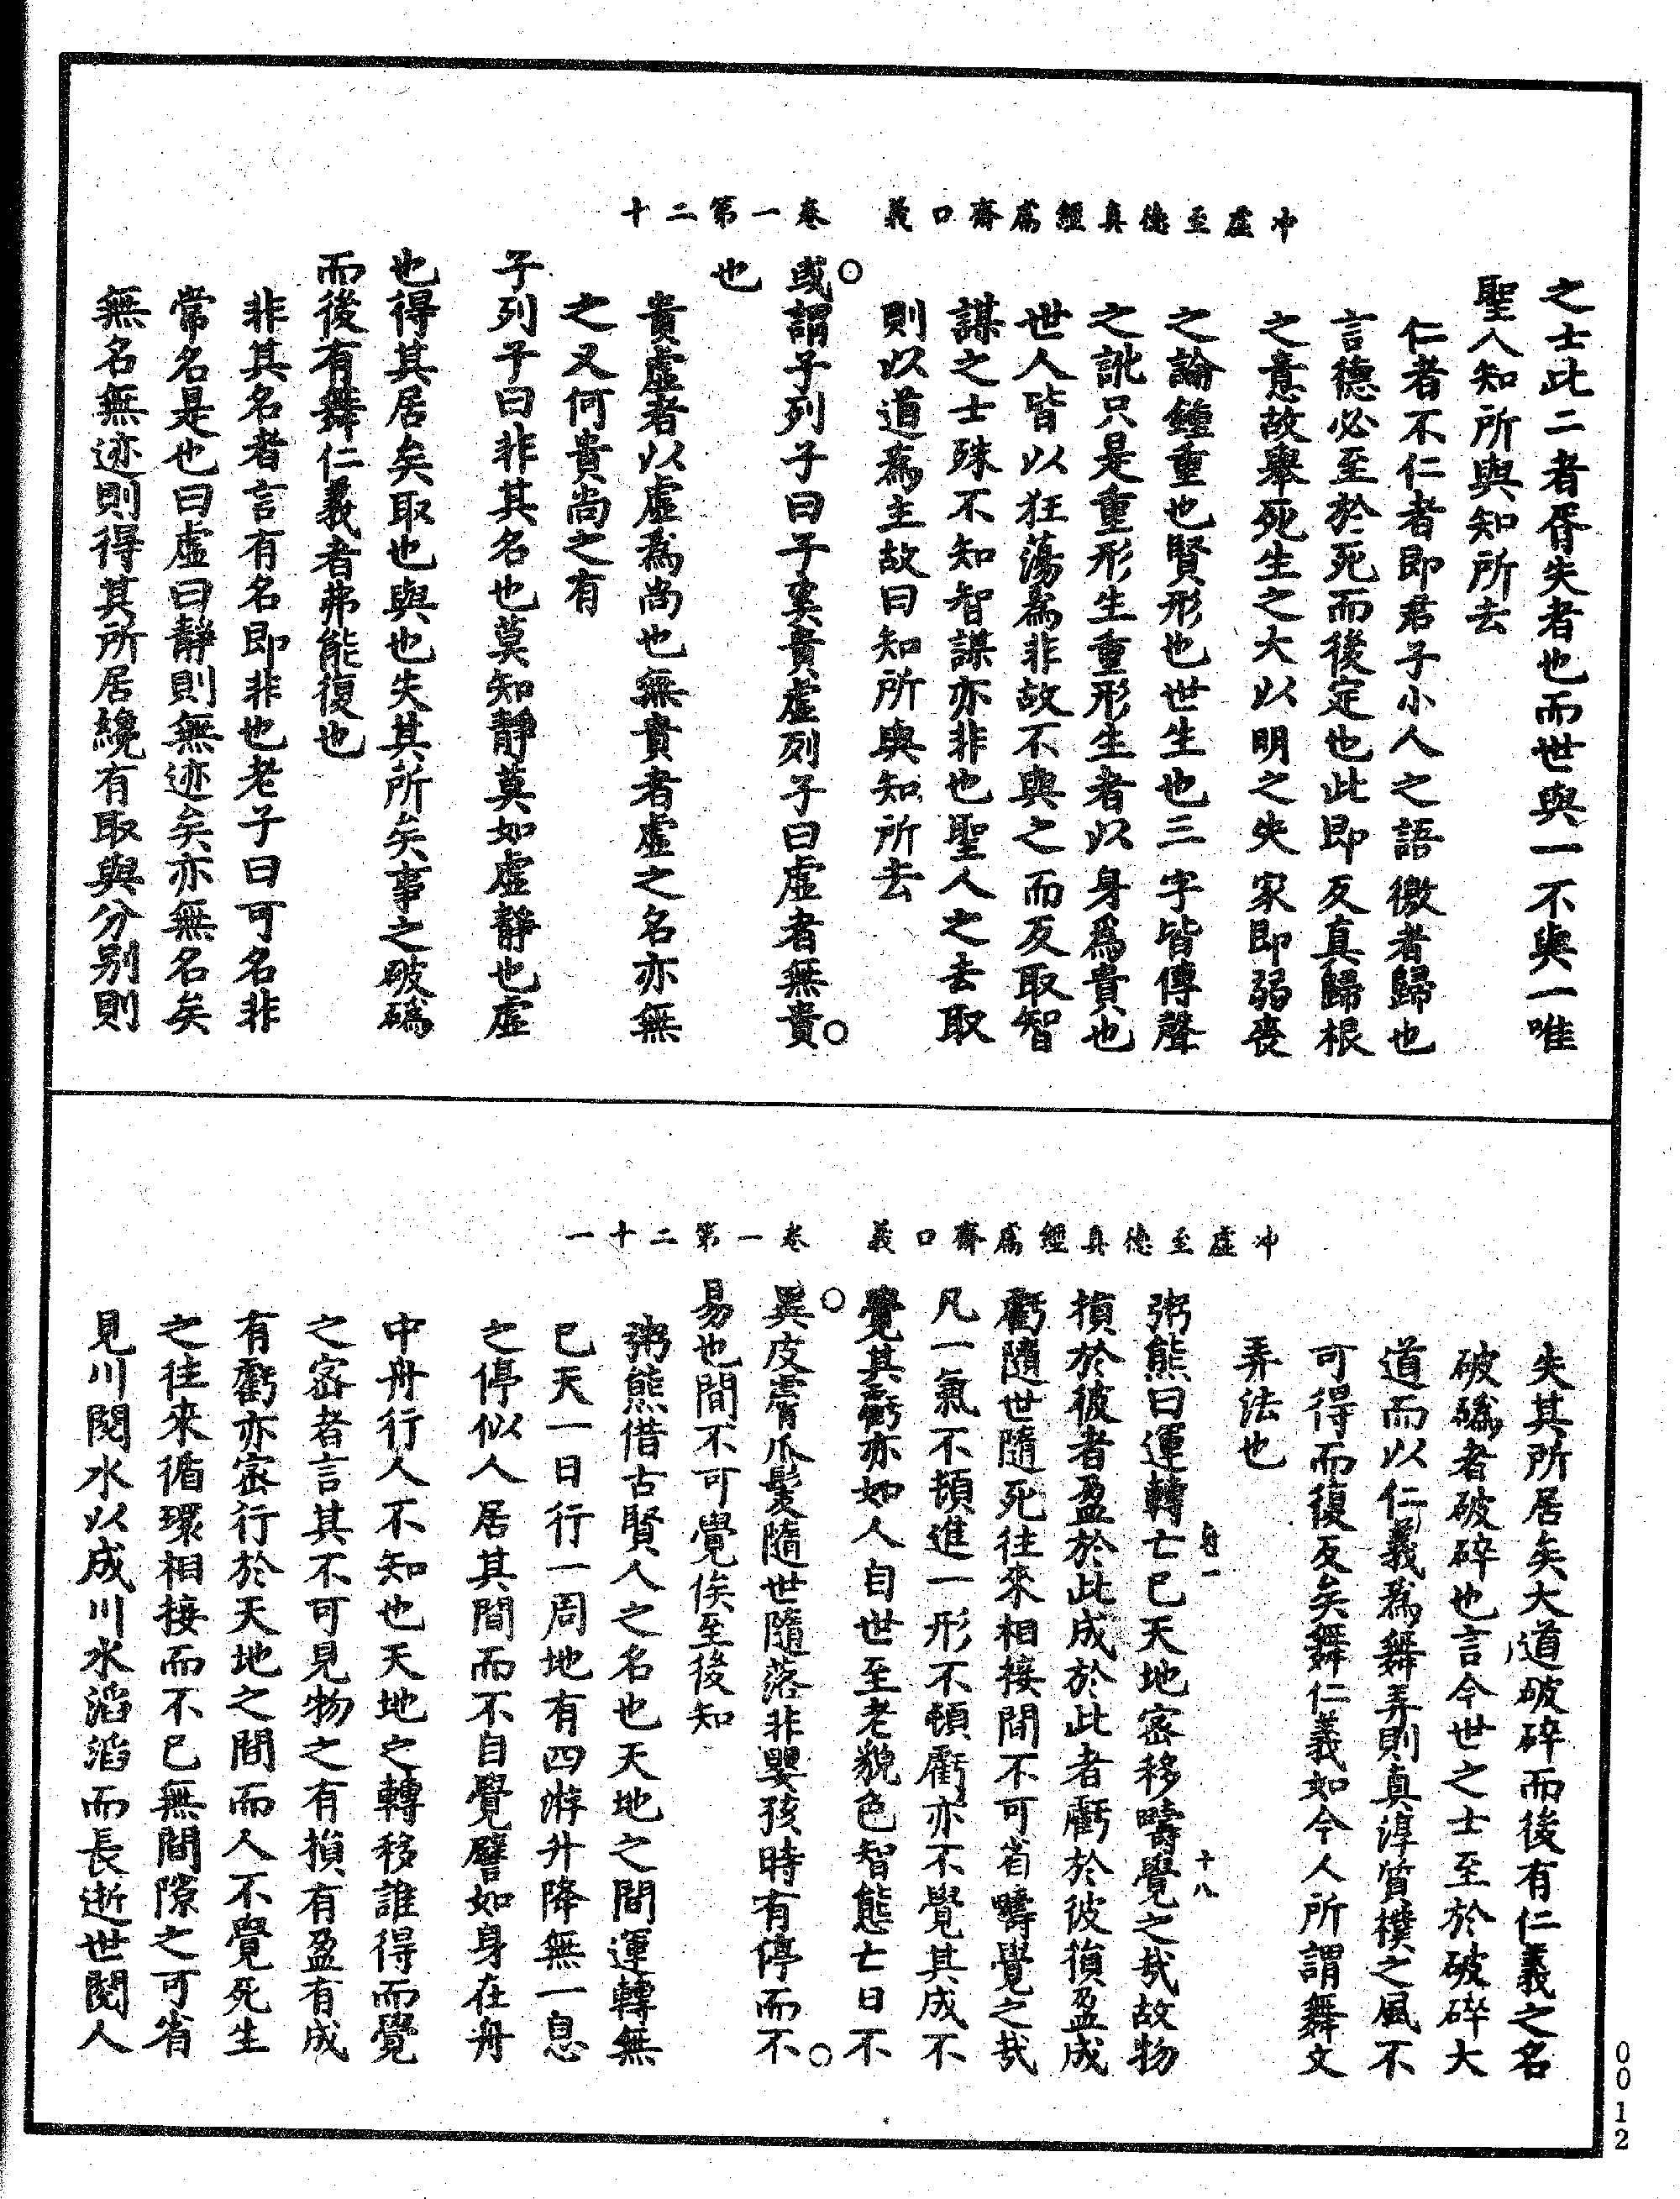 冲虛至德真經鬳齋口義　卷一第二十
之士此二者胥失者也而世與一不與一唯
聖人知所與知所去
仁者不仁者即君子小人之語徼者歸也
言德必至於死而後定也此即反真歸根
之意故舉死生之大以明之失家即弱喪
之論鍾重也賢形也世生也三字皆傳聲
之訛只是重形生重形生者以身爲貴也
世人皆以狂蕩爲非故不與之而反取智
謀之士殊不知智謀亦非也聖人之去取
則以道爲主故曰知所與知所去
或謂子列子曰子奚貴虛列子曰虛者無貴
也
貴虛者以虛爲尚也無貴者虛之名亦無
之又何貴尚之有
子列子曰非其名也莫如靜莫如虛靜也虛
也得其居矣取也與也失其所矣事之破䃣
而後有舞仁義者弗能復也
非其名者言有名即非也老子曰可名非
常名是也曰虛曰靜則無迹矣亦無名矣
無名無迹則得其所居纔有取與分别則
冲虛至德真經鬳齋口義　卷一第二十一
失其所居矣大道破碎而後有仁義之名
破䃣者破碎也言今世之士至於破碎大
道而以仁義爲舞弄則真淳質樸之風不
可得而復反矣舞仁義如今人所謂舞文
弄法也
粥熊曰運轉亡已天地密移疇覺之哉故物
損於彼者盈於此成於此者虧於彼損盈成
虧隨世隨死往來相接間不可省疇覺之哉
凡一氣不頓進一形不頓虧亦不覺其成不
覺其虧亦如人自世至老貌色智態亡日不
異皮膚爪髮隨世隨落非嬰孩時有停而不
易也間不可覺俟至後知
粥熊借古賢人之名也天地之間運轉無
已天一日行一周地有四游升降無一息
之停似人居其間而不自覺譬如身在舟
中舟行人不知也天地之轉移誰得而覺
之密者言其不可見物之有損有盈有成
有虧亦密行於天地之間而人不覺死生
之往來循環相接而不已無間隙之可省
見川閱水以成川水滔滔而長逝世閱人
十八
0012